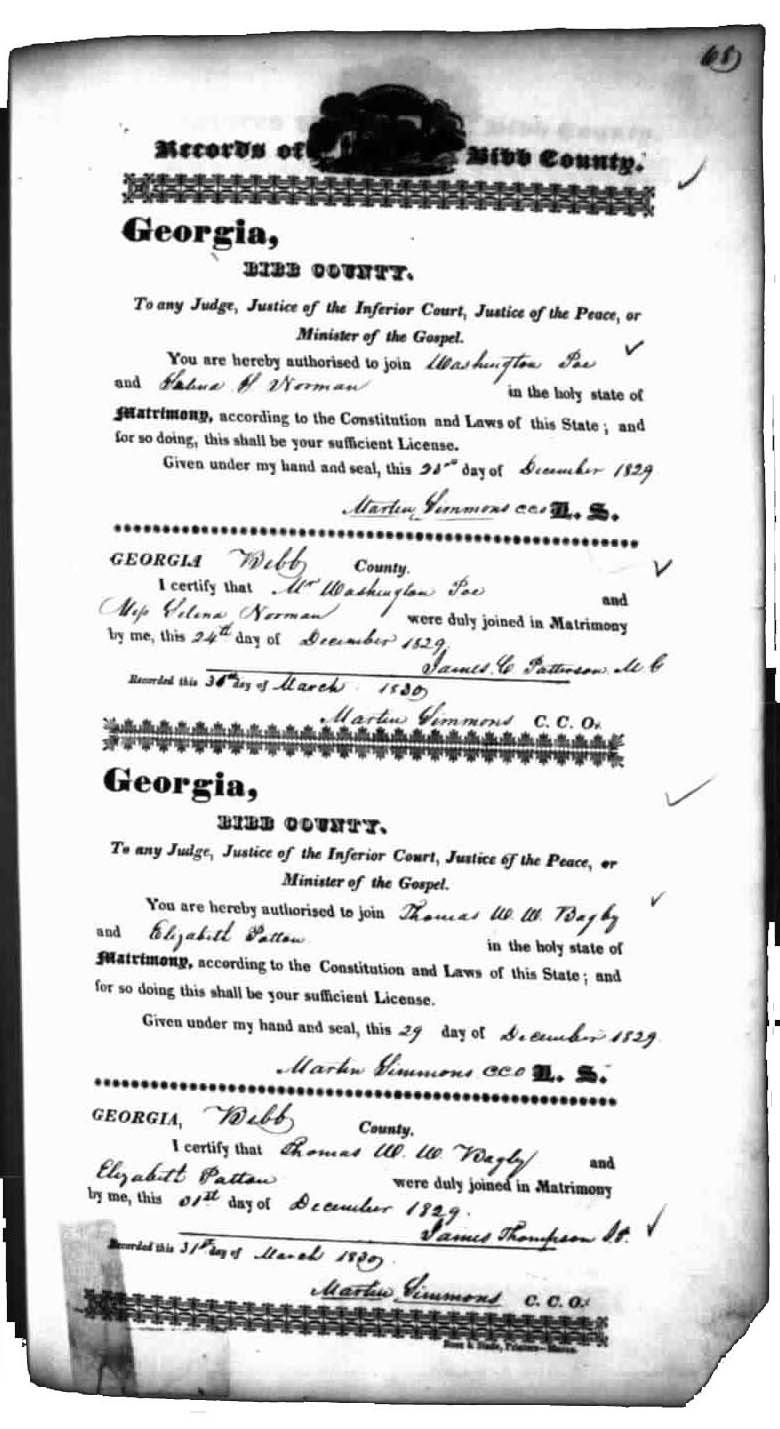 68
Records of Bibb County.
Georgia,
BIBB COUNTY.
To any Judge, Justice of the Inferior Court, Justice of the Peace, or
Minister of the Gospel.
You are hereby authorised to join Washington Poe
and Selina S Norman in the holy state of
Matrimony, according to the Constitution and Laws of this State; and
for so doing, this shall be your sufficient License.
Given under my hand and seal, this day of December 1829
Martin Simmons CCO L. S.
GEORGIA Bibb County.
I certify that Mr Washington Poe and
Miss Selina Norman were duly joined in Matrimony
by me, this 24th day of December 1829.
James C Patterson M G
Recorded this day of March 1830
Martin Simmons C. C. O.
Georgia,
BIBB COUNTY.
To any Judge, Justice of the Inferior Court, Justice of the Peace, or
Minister of the Gospel.
You are hereby authorised to join Thomas W. W. Bagby
and Elizabeth Patton in the holy state of
Matrimony, according to the Constitution and Laws of this State; and
for so doing this shall be your sufficient License.
Given under my hand and seal, this 29 day of December 1829
Martin Simmons CCO L. S.
GEORGIA, Bibb County.
I certify that Thomas W. W. Bagby and
Elizabeth Patton were duly joined in Matrimony
by me, this 31st day of December 1829.
James Thompson J.P.
Recorded this 31st day of March 1830
Martin Simmons C. C. O.
Printers—Macon.